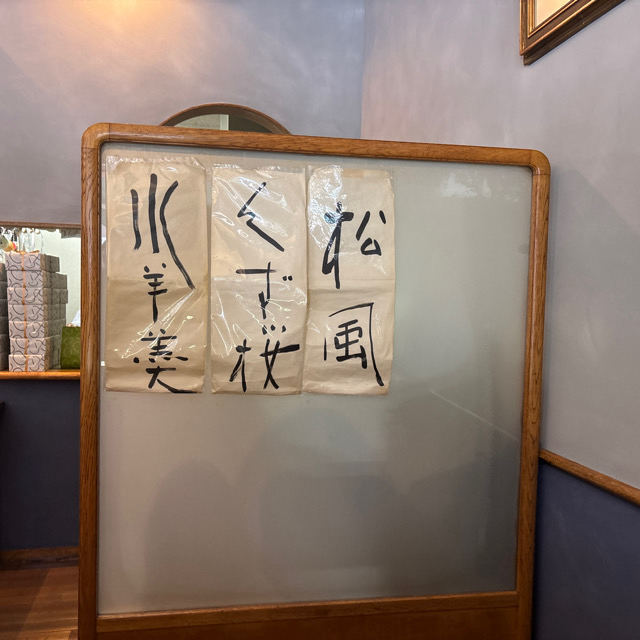 松風
くず桜
水羊羹